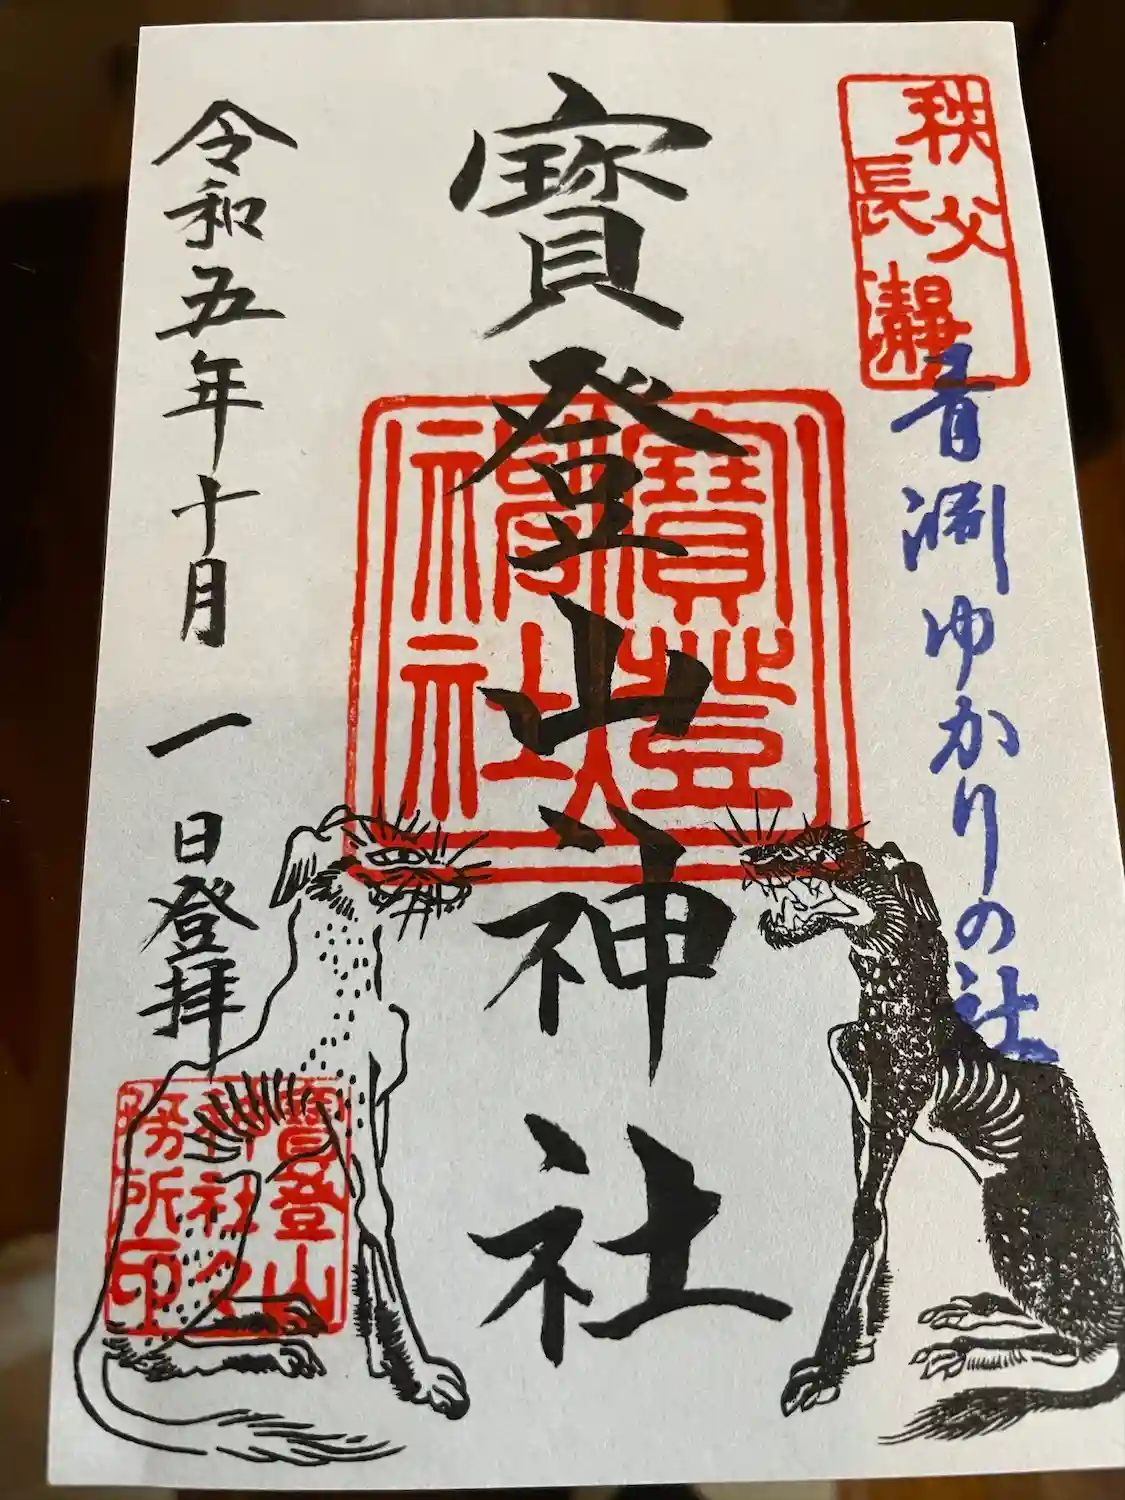 秩父
長瀞
青淵ゆかりの社
寶登山神社
寶登山
神社
令和五年十月一日登拝
寶登山
神社之
務所印